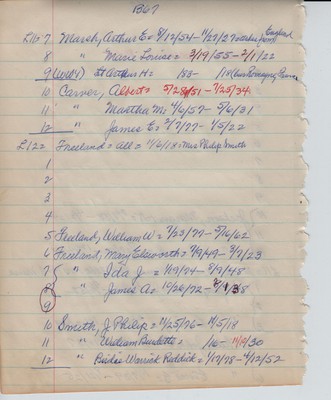 1367
L167 Marsh, Arthur E = 8/12/54 - 11/27/27 England
8 " Marie Louise = 3/19/55 - 2/1/22
9 (WW1) Lt Arthur H = 188 - 1/18 France
10 Carver, Albert = 5/28/51 - 7/25/34
11 " Martha M = 4/6/57 - 5/6/31
12 " James E = 2/7/77 - 4/5/22
L122 Freeland = All = 11/6/18 = Mrs Philip Smith
1
2
3
4
5 Freeland, William W = 7/23/77 - 5/16/62
6 Freeland, Mary Elsworth = 7/9/49 - 3/7/23
7 " Ida J = 1/19/74 - 2/9/48
8 " James A = 10/26/72 - 2/1/38
9
10 Smith, J Philip = 2/25/76 - 11/5/18
11 " William Burdette = 116 - 11/10/30
12 " Birdie Warrick Reddick = 1/17/78 - 4/12/52